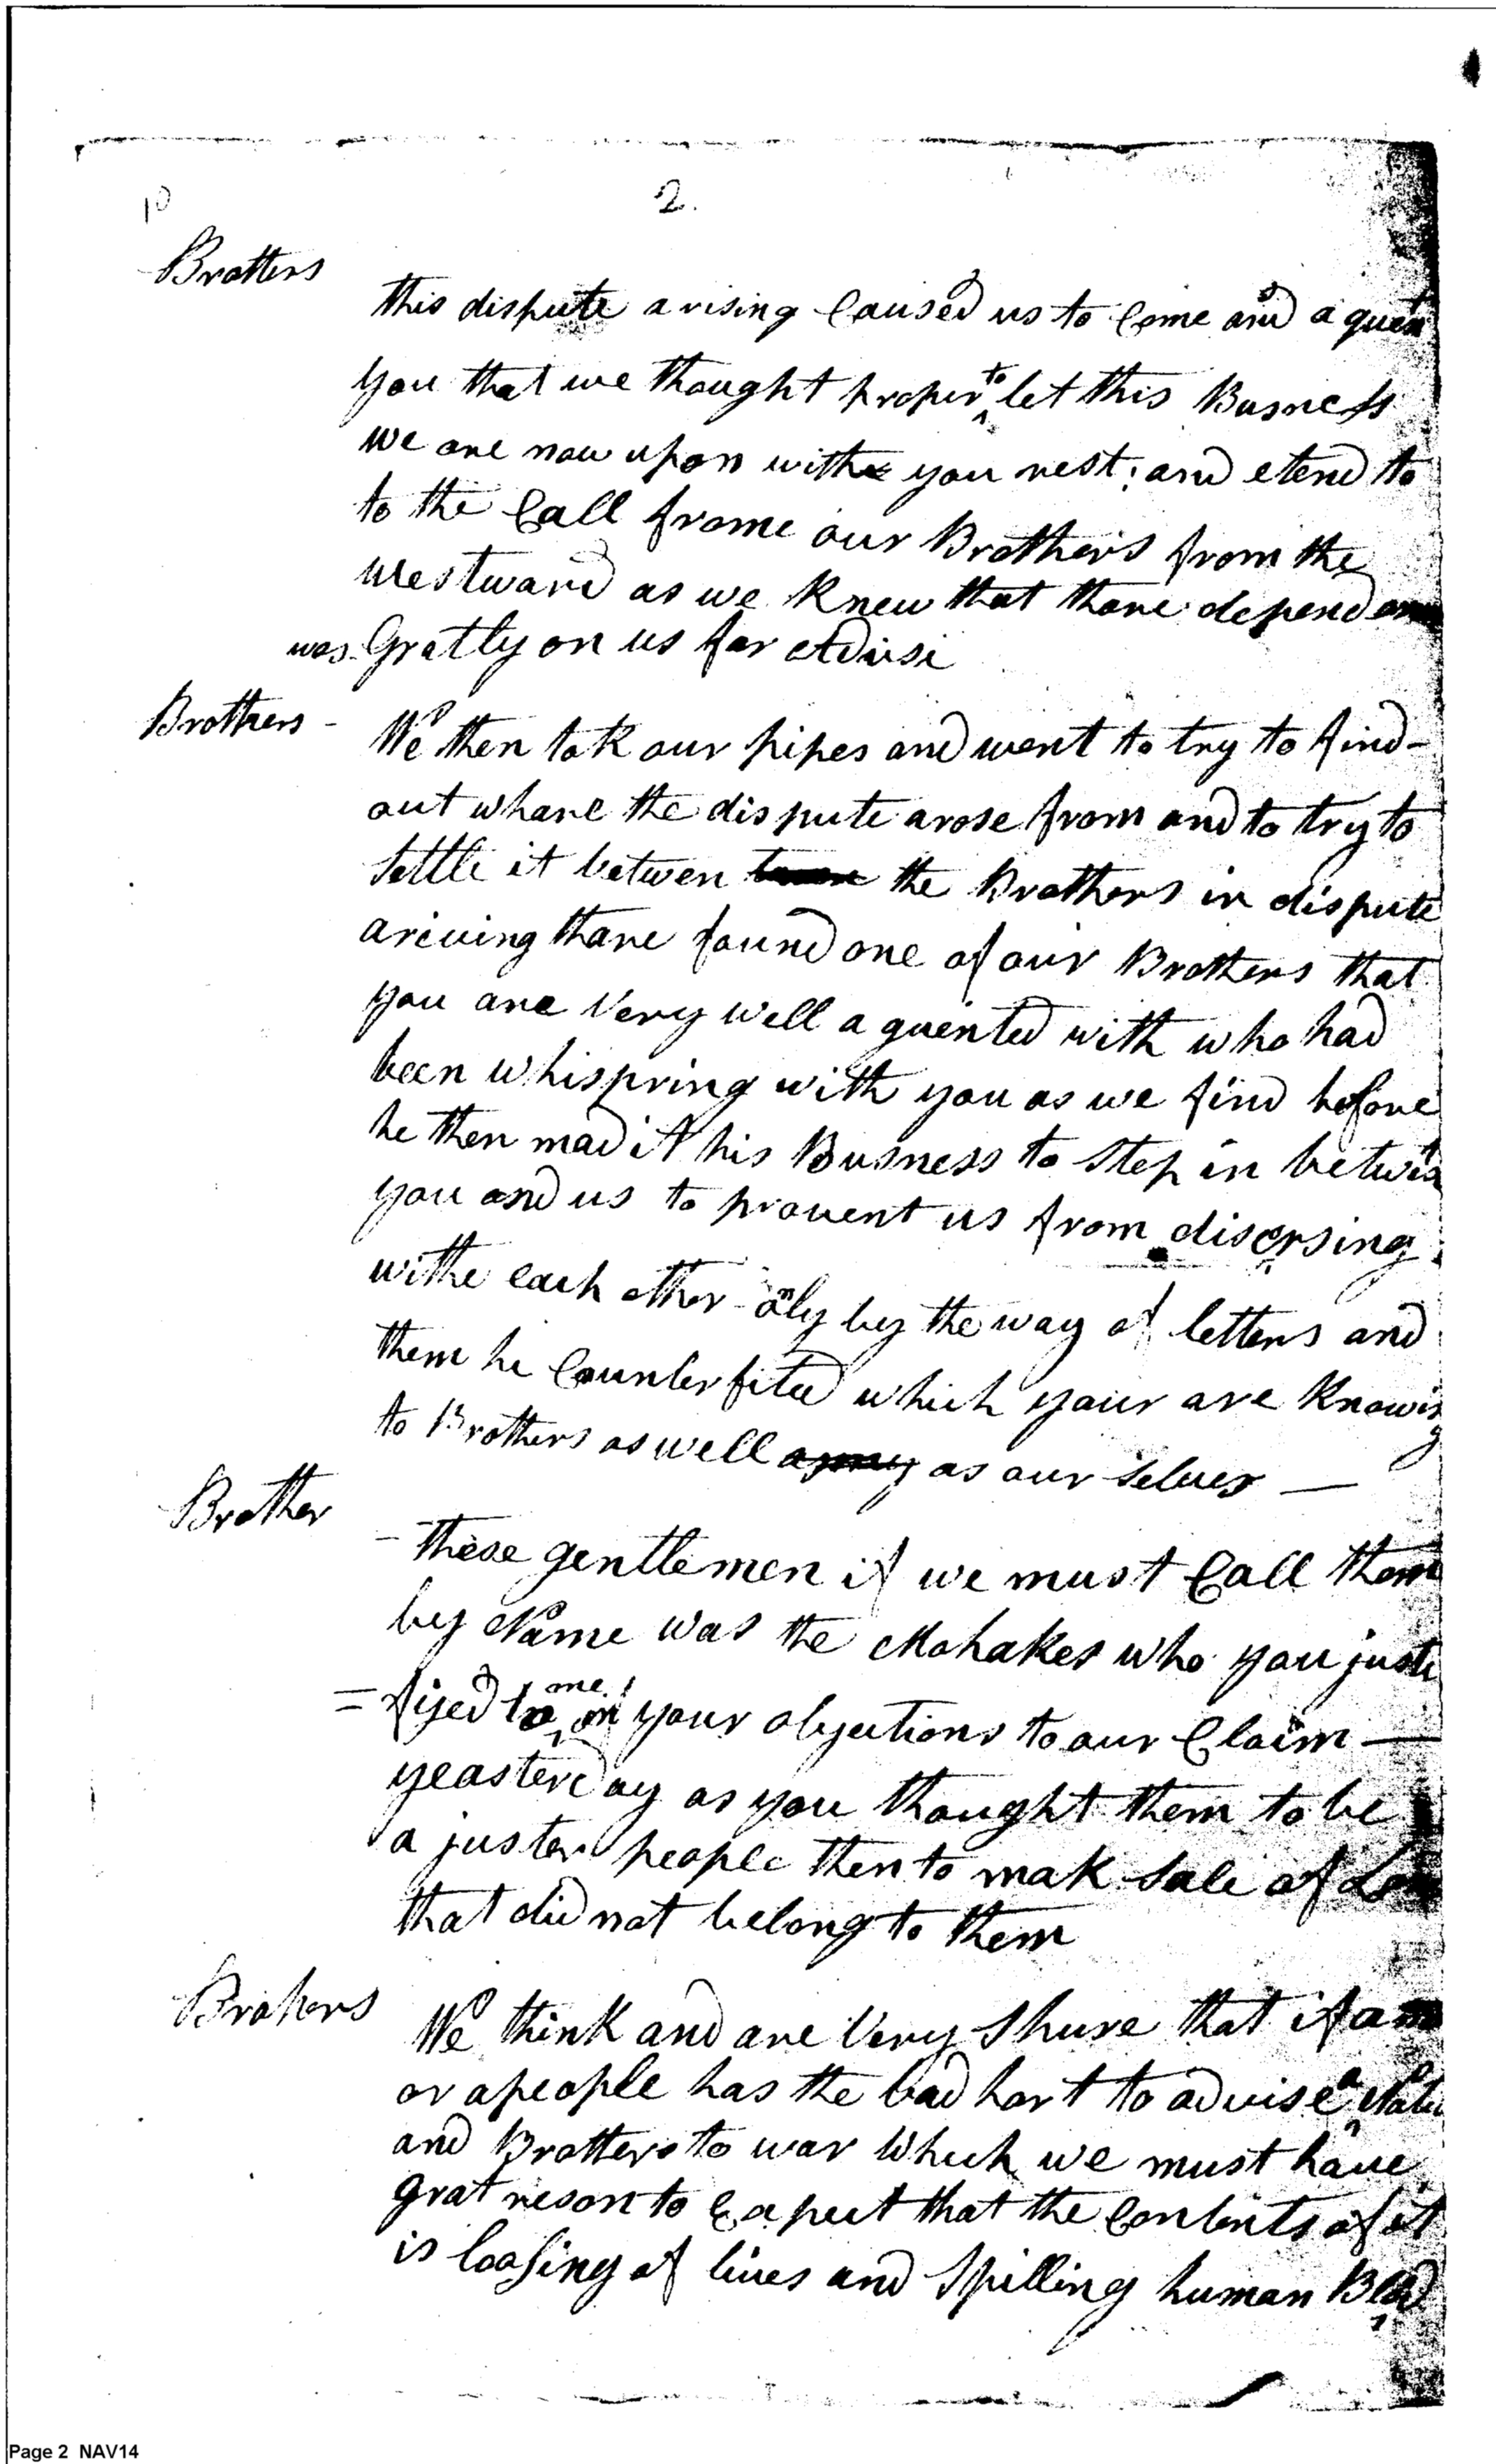 10
2.
Brotters
this dispute arising Caused us to Come and a quent
you that we thought proper to let this Busness
we are now upon with you rest; and etend to
to the Call frome our Brothers from the
westward as we knew that thare depend
was Gratly on us for Advise
Brothers -
We then tok our pipes and went to try to find-
out whare the dispute arose from and to try to
settle it betwen the Brothers in dispute
ariving thare found one of our Brothers that
you are Very well a quented with who had
been whispring with you as we find before
he then mad it his Busness to step in betwix
you and us to prevent us from discorsing
withe each other only by the way of letters and
them he Counterfited which your are knowing
to Brothers as well as our selves —
Brother
- These gentlemen if we must Call them
by Name was the Mohakes who you justi
= fyed to me in your objections to our Claim —
yeasterday as you thought them to be
a juster people then to mak sale of
that did not belong to them
Brohers
We think and are Very Shure that if a
or a people has the bad hart to advise a
and Brotters to war Which we must have
grat reson to Expect that the Contints of it
is loosing of lives and Spilling human Blod
Page 2 NAV14